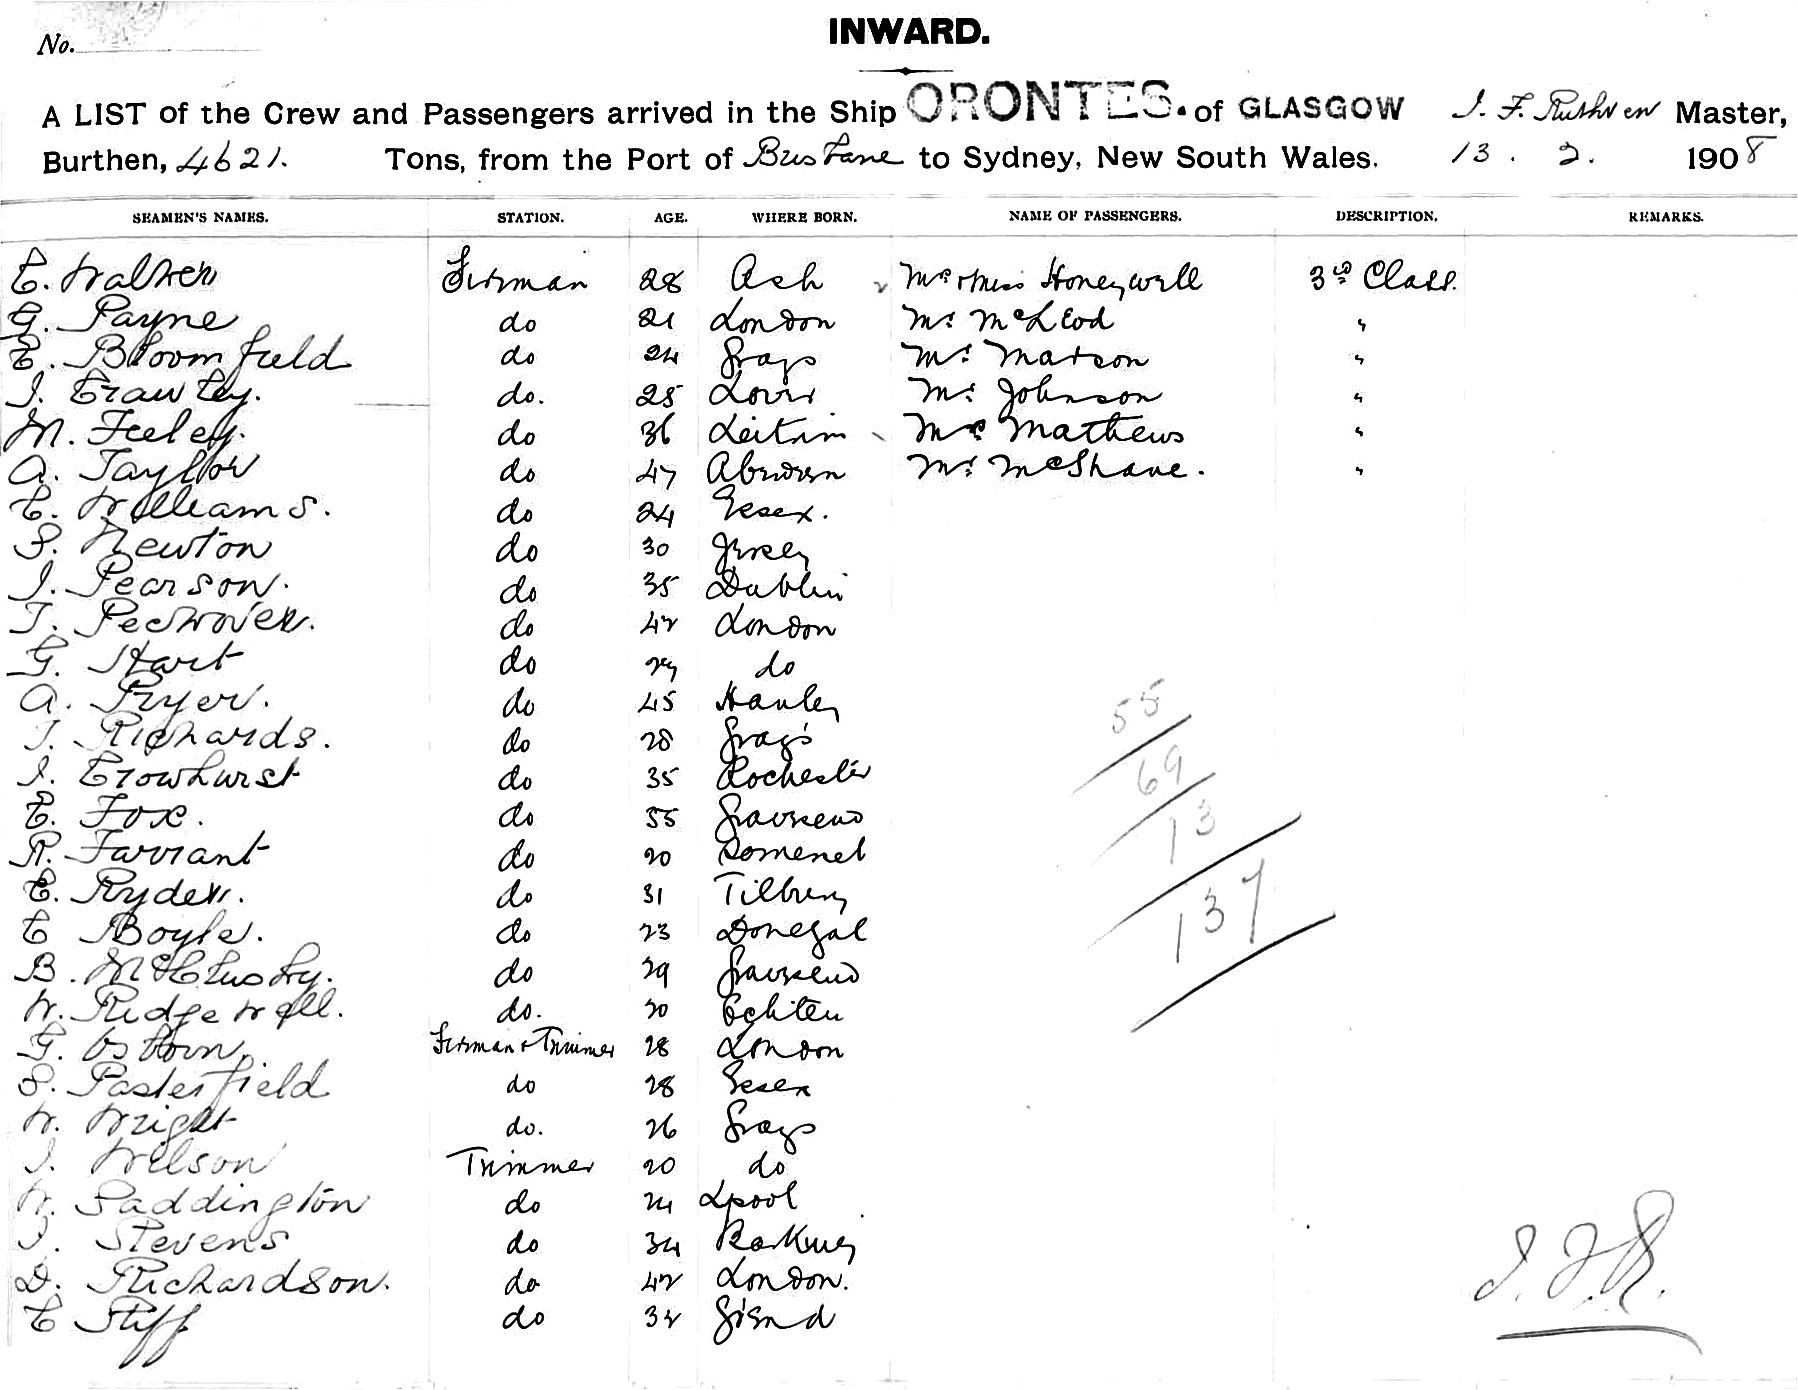 INWARD.
No.
A LIST of the Crew and Passengers arrived in the Ship ORONTES. of GLASGOW J. F. Ruthven Master,
Burthen, 4621. Tons, from the Port of Brisbane to Sydney, New South Wales. 13. 2. 1908
SEAMEN'S NAMES. STATION. AGE. WHERE BORN. NAME OF PASSENGERS. DESCRIPTION. REMARKS.
E. Walker Fireman 28 Ash Mrs & Miss Honeywill 3rd Class.
G. Payne do 21 London Mr. McLeod "
E. Bloomfield do 24 Grays Mr. Matson "
J. Crawley. do. 25 Mr. Johnson "
M. Feeley. do 36 Leitrim Mrs Mathews "
A. Taylor do 47 Aberdeen Mr. McShane. "
E. Williams. do 24 Essex.
S. Newton do 30 Jersey
J. Pearson. do 35 Dublin
T. do 42 London
G. Hart do 29 do
A. Pryer. do 45 Hanley
T. Richards. do 28 Grays
J. Crowhurst do 35 Rochester
E. Fox. do 55 Gravesend
R. Farrant do 20
E. Ryder. do 31 Tilbury
C Boyle. do 23 Donegal
B. McClusky. do 29 Gravesend
W. Ridgewell. do. 20
G. Osborn. Fireman & Trimmer 28 London
S. Pasterfield do 28 Essex
W. Wright do. 26 Grays
J. Wilson Trimmer 20 do
W. Saddington do 24 Lpool
J. Stevens do 34 Barking
D. Richardson. do 42 London.
C Stiff do 32 G'send
55
69
13
137
J. F. R.